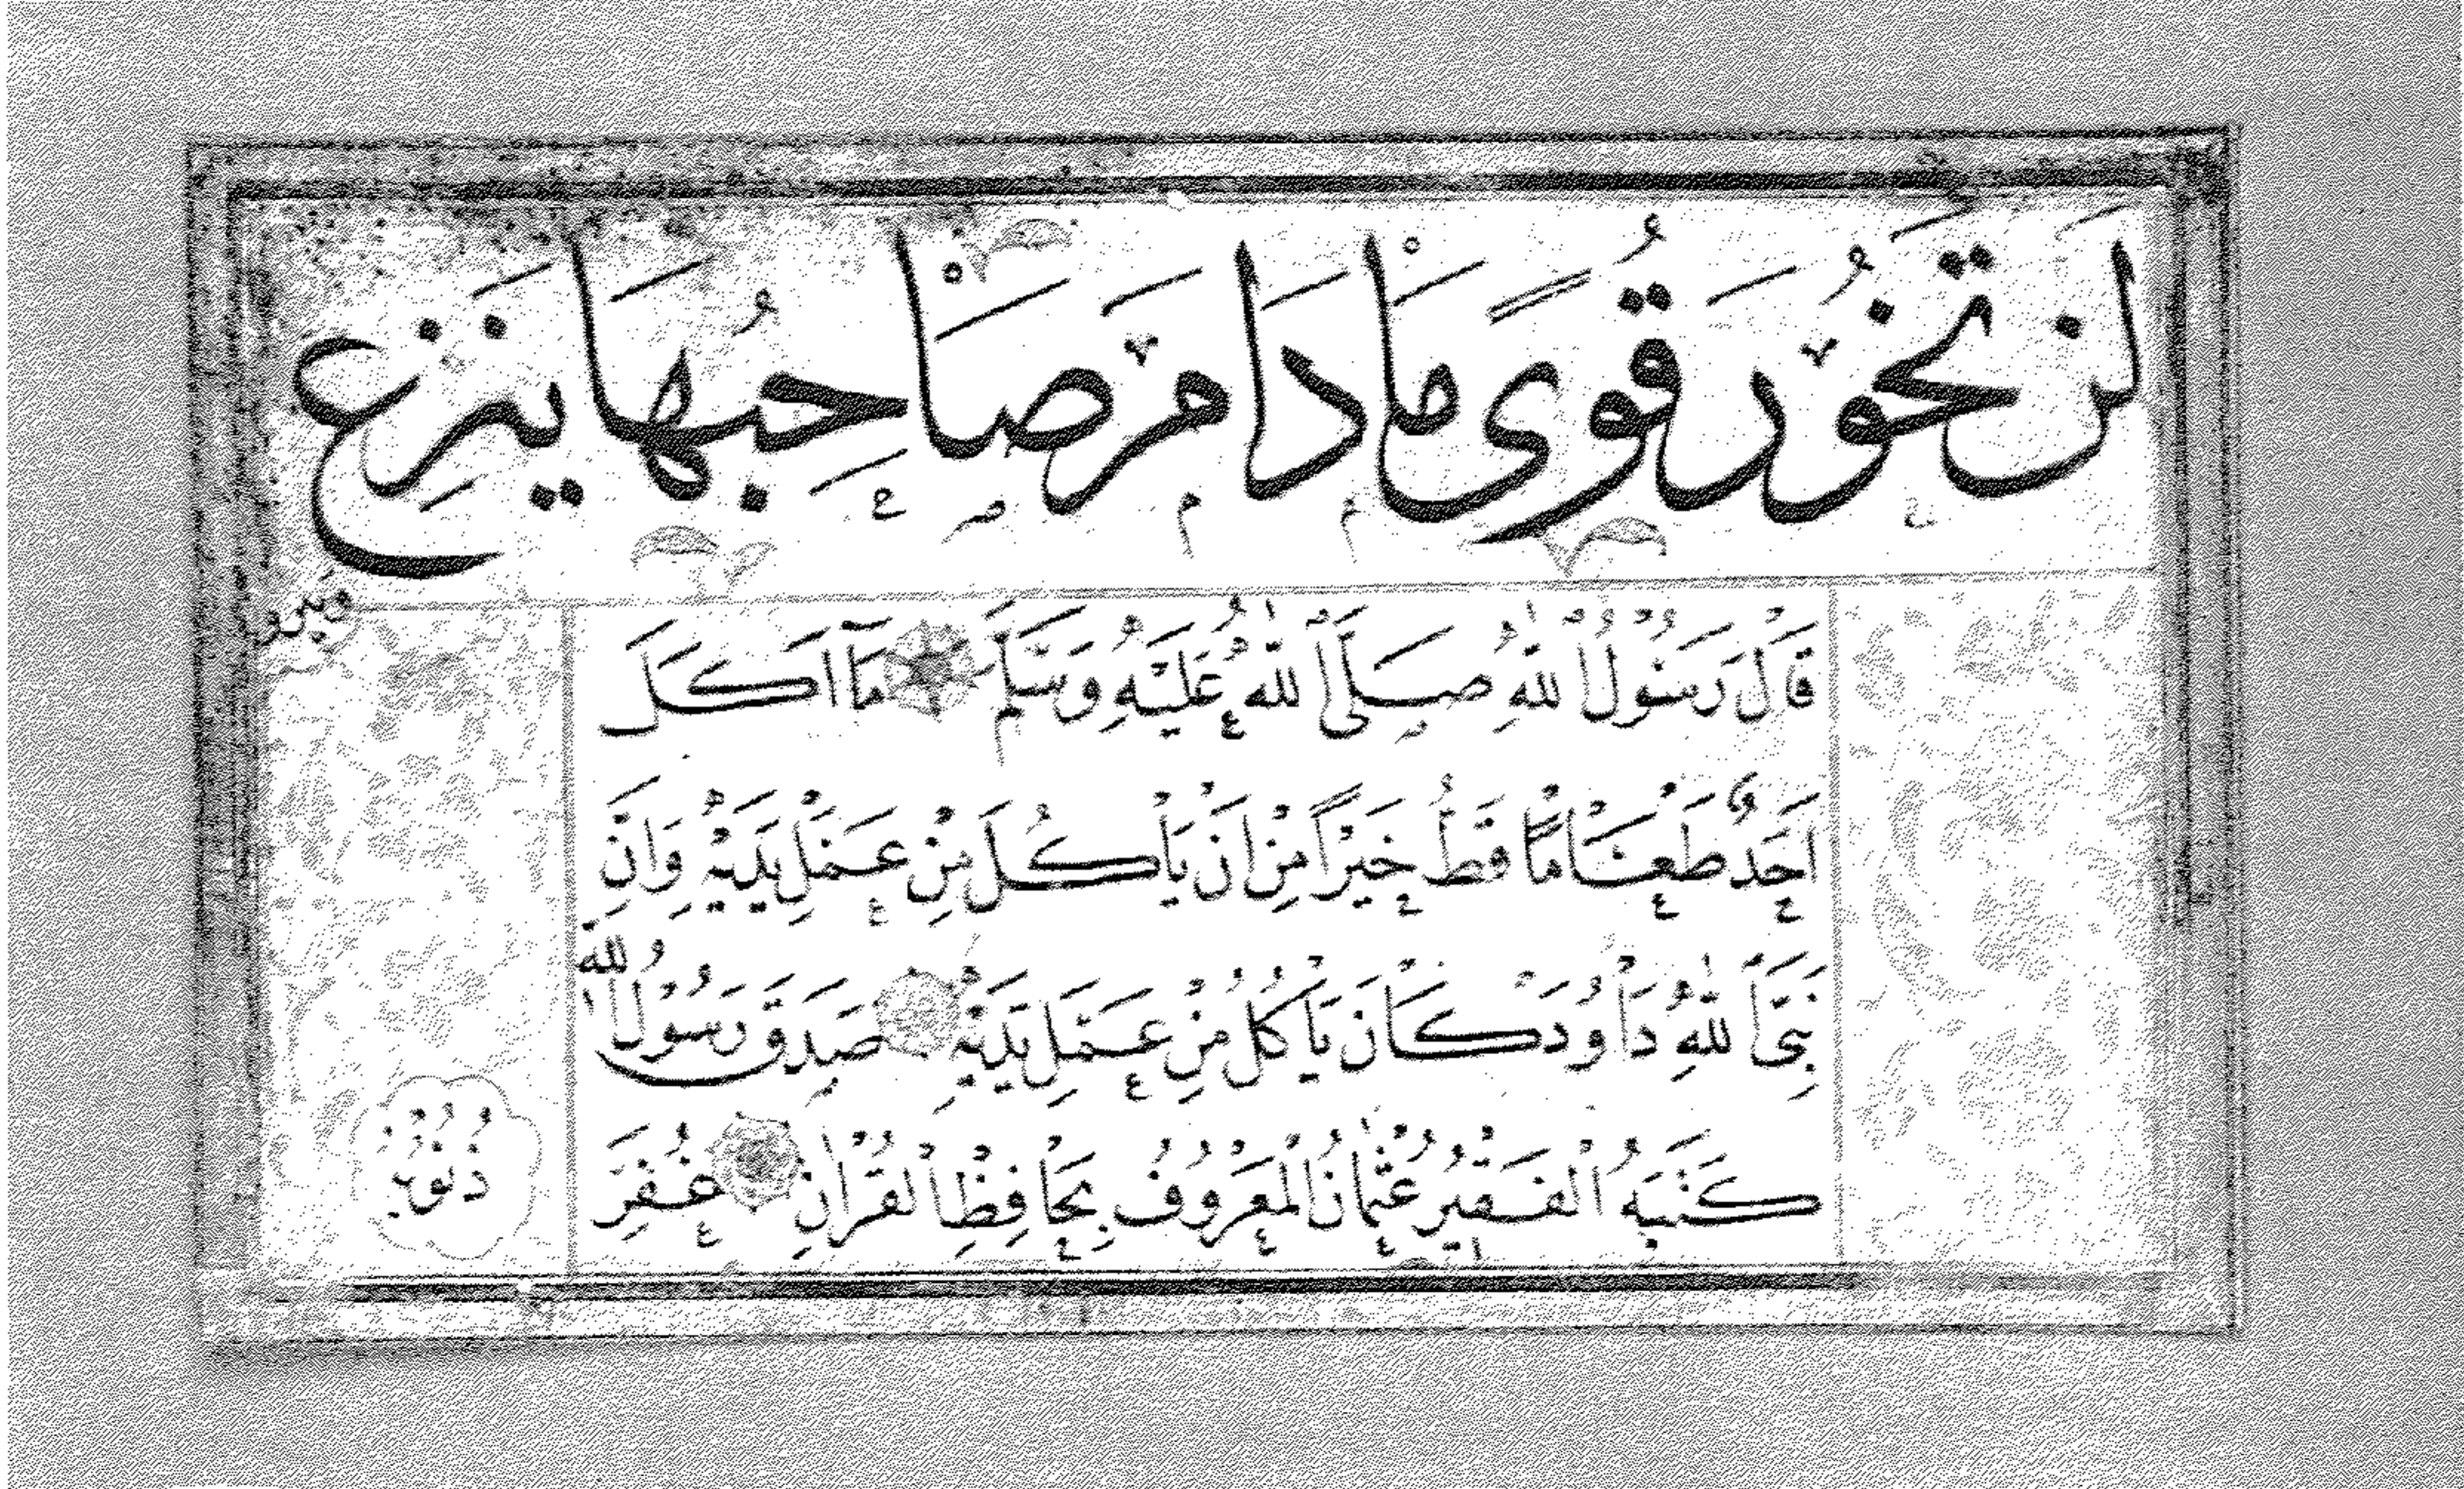 لَنْ تَخُورَ قُوًى مَا دَامَ صَاحِبُهَا يَنْزِعُ
وينزو
قَالَ رَسُولُ اللهِ صَلَّى اللهُ عَلَيْهِ وَسَلَّمَ مَا اَكَلَ
اَحَدٌ طَعَامًا قَطُّ خَيْرًا مِنْ اَنْ يَاْكُلَ مِنْ عَمَلِ يَدَيْهِ وَاِنَّ
نَبِيَّ اللهِ دَاوُدَ كَانَ يَاْكُلُ مِنْ عَمَلِ يَدَيْهِ صَدَقَ رَسُولُ الله
كَتَبَهُ الْفَقِيرُ عُثْمَانُ الْمَعْرُوفُ بِحَافِظِ الْقُرْاٰنِ غُفِرَ
ذُنُوبُهُ